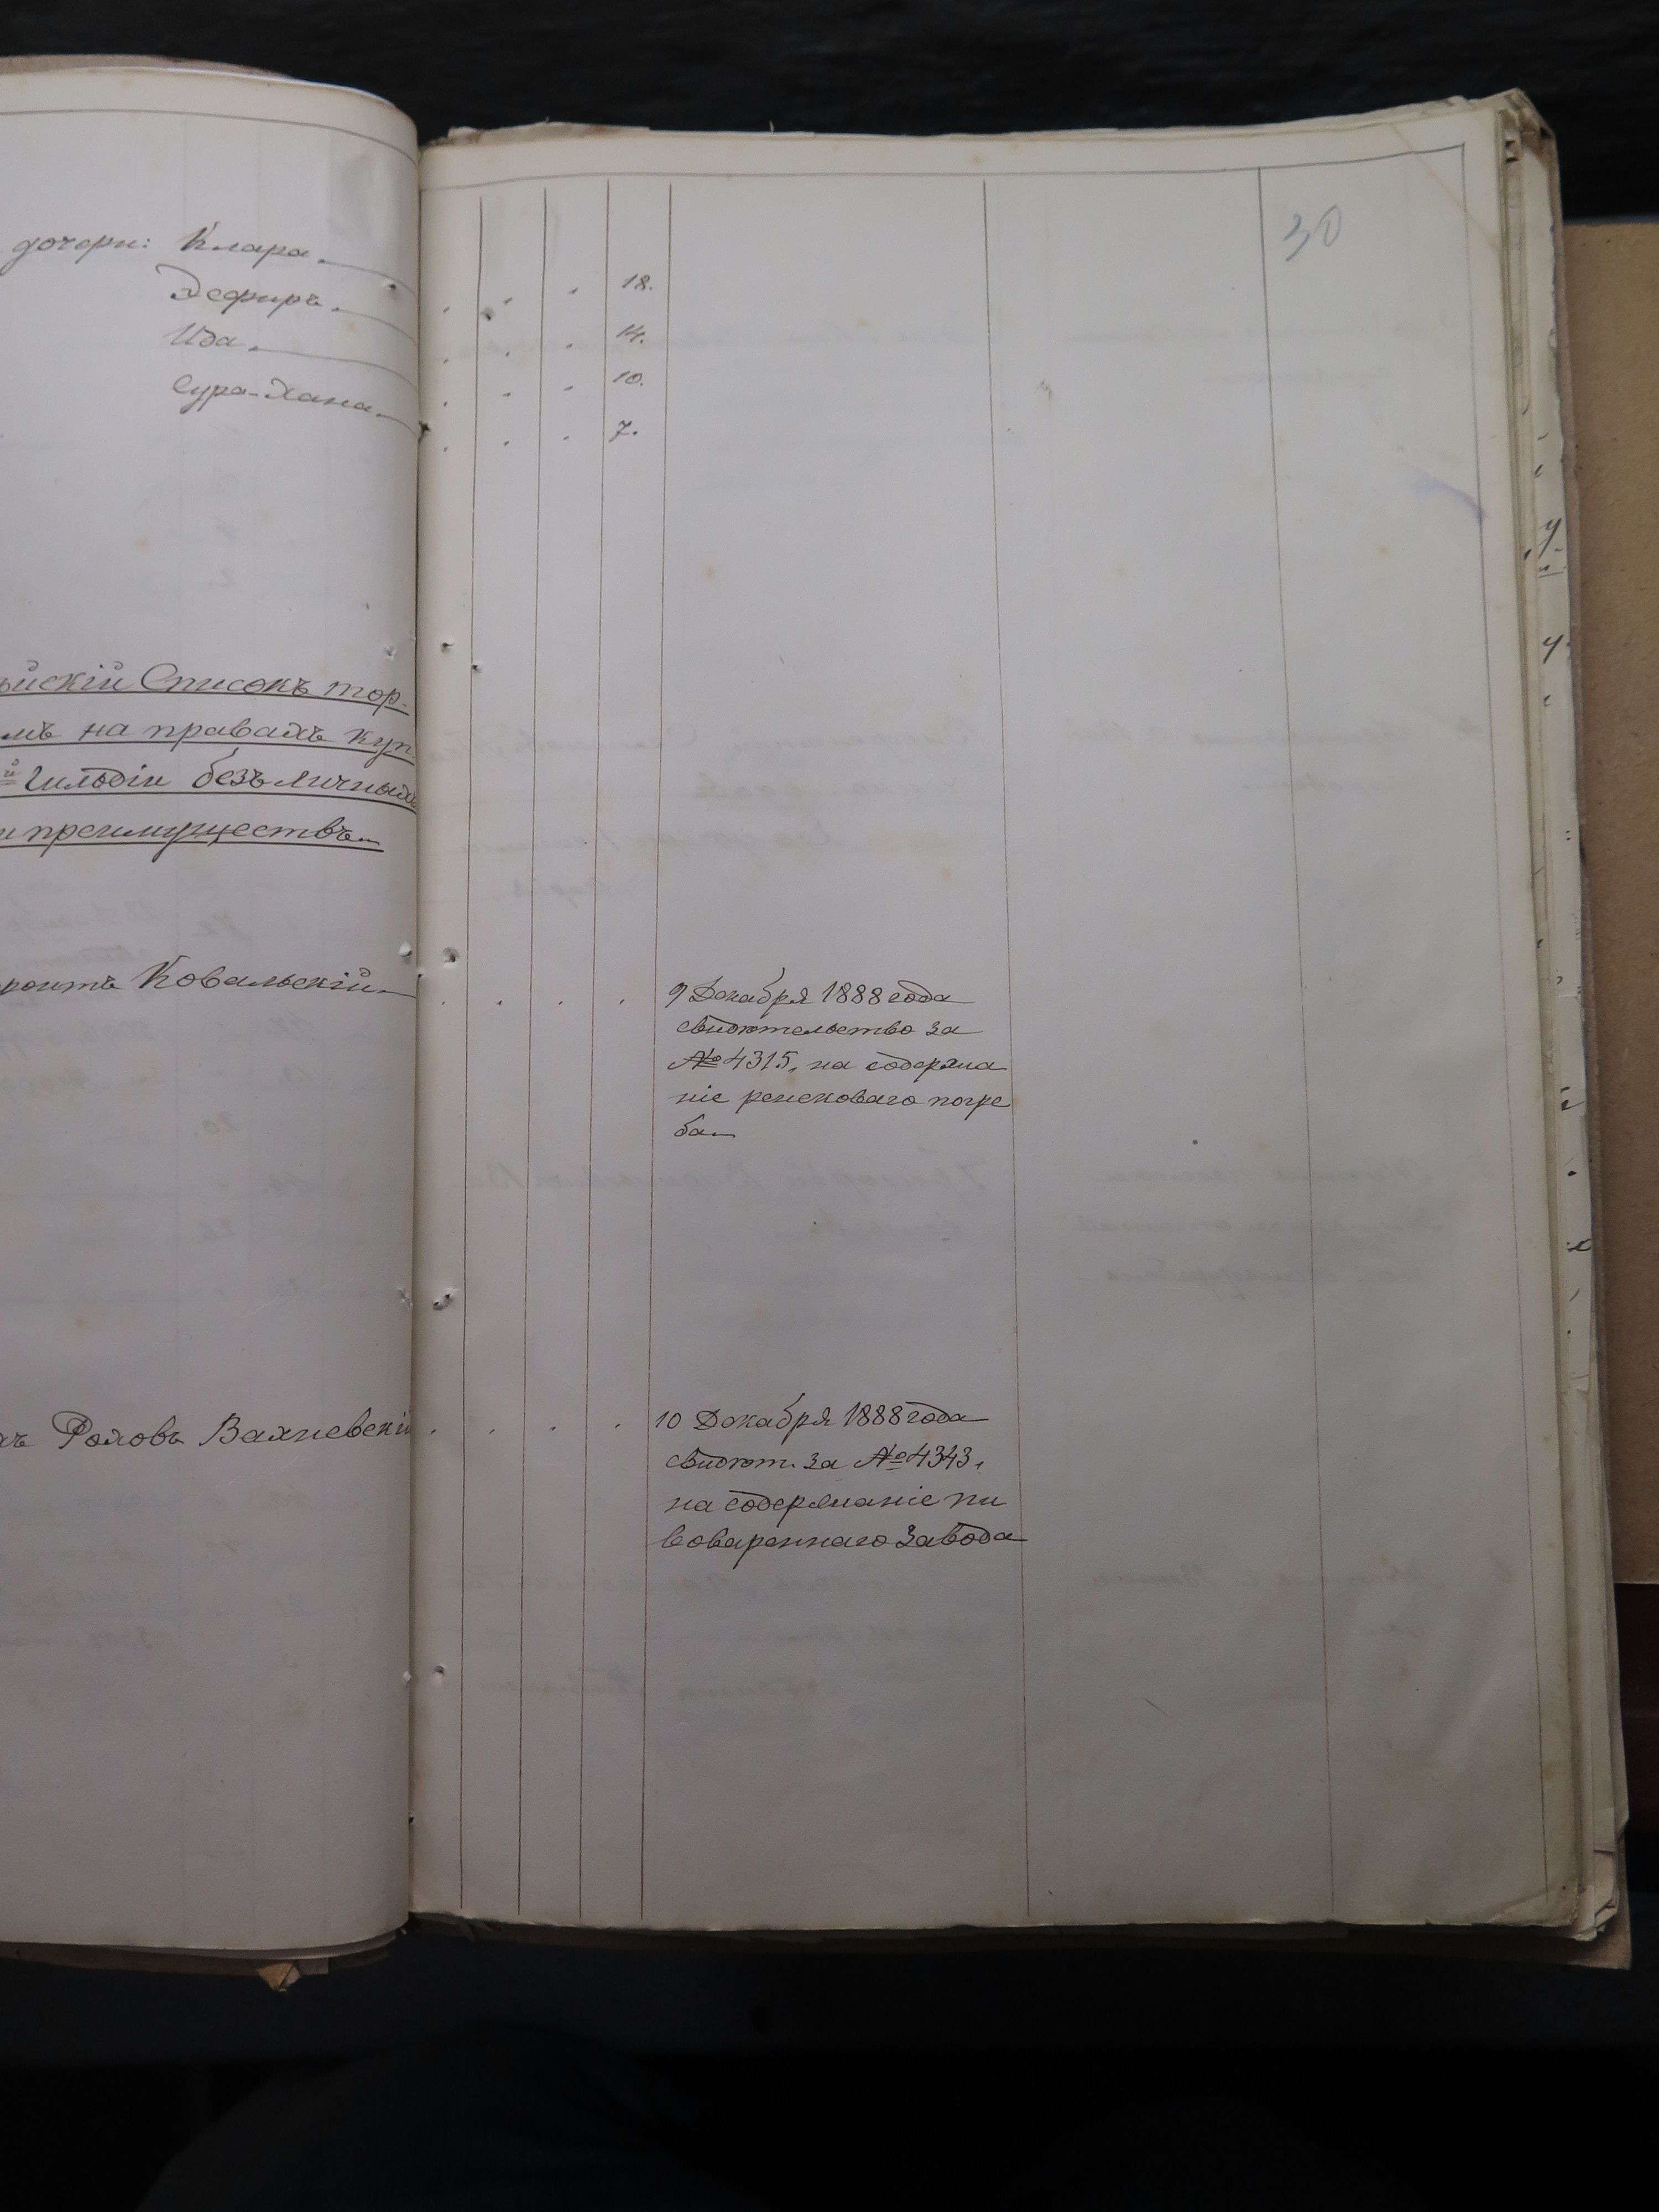 30
дочери: Клара.
Эсфирь.
Ида.
Сура-Хана.
18.
14.
10.
7.
Списокъ тор-
на правахъ куп
Гильдіи безъ личныхъ
и преимуществъ.
Ковальскій
9 Декабря 1888 года
свидѣтельство за
№ 4315, на содержа
ніе ренсковаго погре
ба.
Вахневскій
10 Декабря 1888 года
свидѣт. за № 4343,
на содержаніе пи
вовареннаго завода